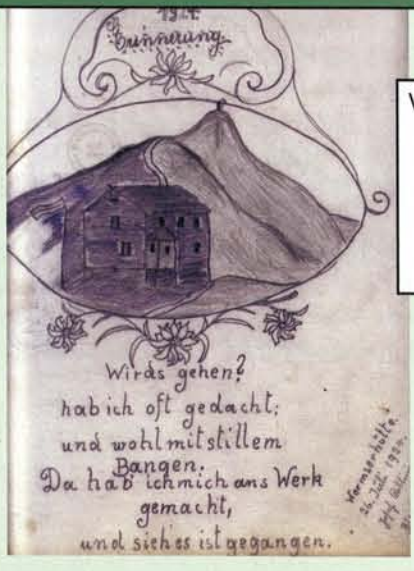 1924
Erinnerung
Wirds gehen?
hab ich oft gedacht;
und wohl mit stillem
Bangen.
Da hab ich mich ans Werk
gemacht,
und sieh es ist gegangen.
Wormserhütte
26. Juli 1924.